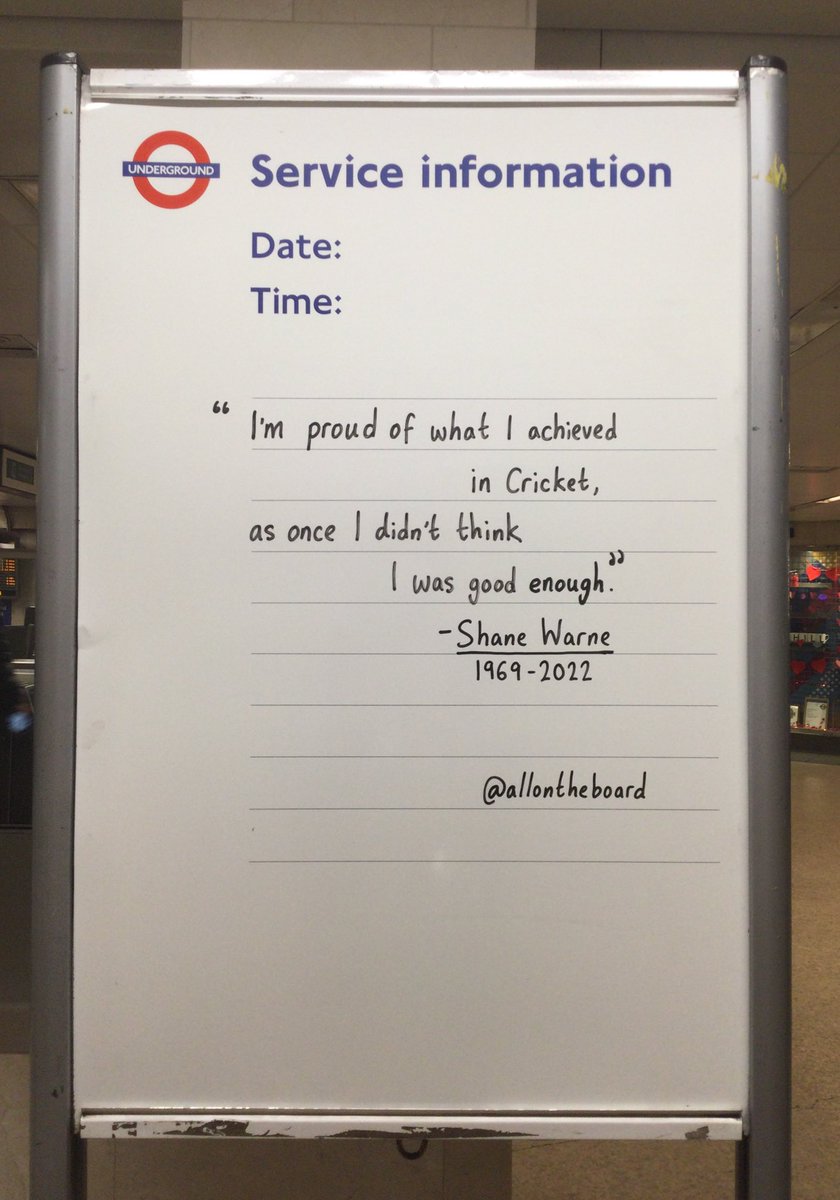 UNDERGROUND
Service information
Date:
Time:
“I'm proud of what I achieved
in Cricket,
as once I didn't think
I was good enough.”
-Shane Warne
1969-2022
@allontheboard